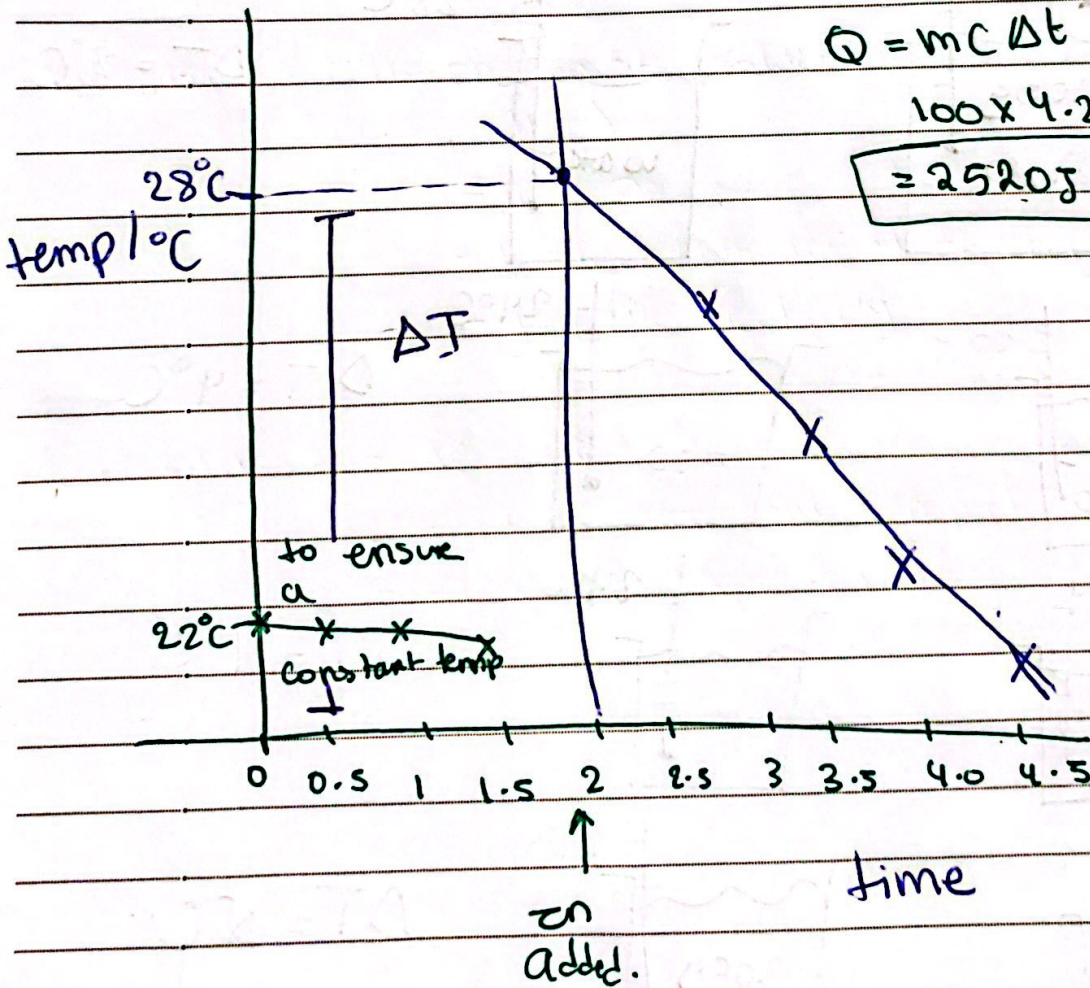 Q = mc Δt
100 x 4.2
= 2520J
28°C
temp/°C
ΔT
to ensure
a
22°C
constant temp
0 0.5 1 1.5 2 2.5 3 3.5 4.0 4.5
time
Zn
added.